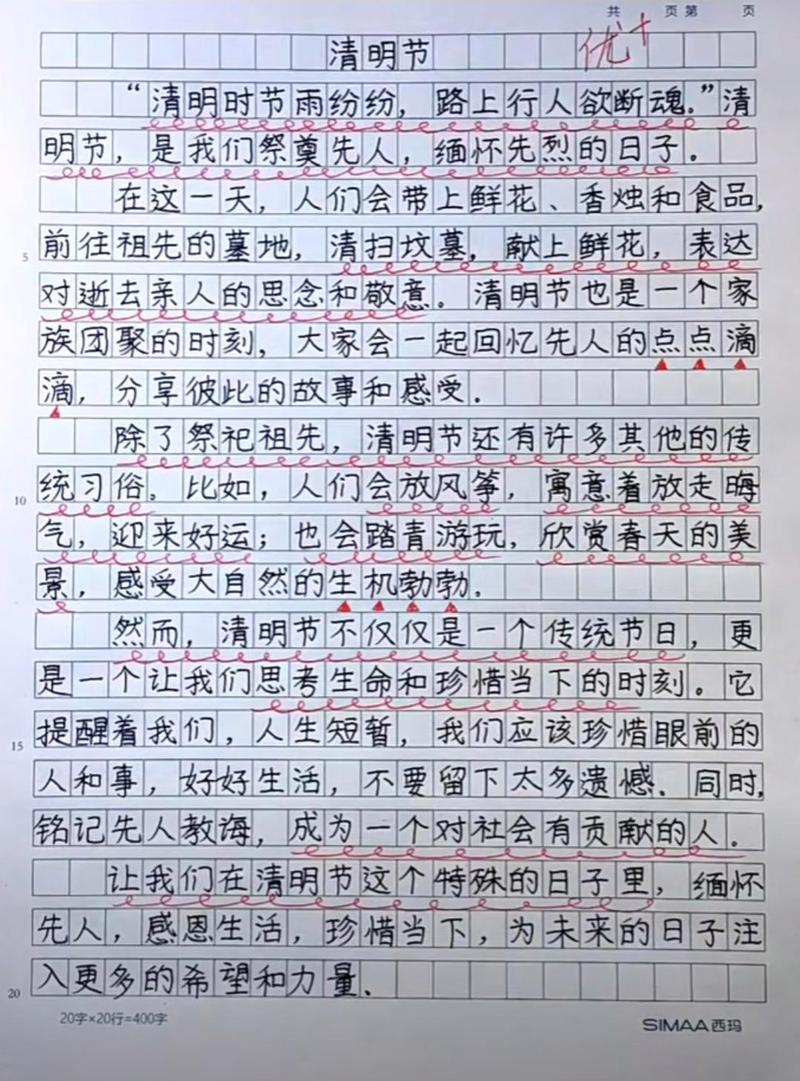 共 页 第 页
清明节 优+
“清明时节雨纷纷，路上行人欲断魂。”清
明节，是我们祭奠先人，缅怀先烈的日子。
在这一天，人们会带上鲜花、香烛和食品，
5 前往祖先的墓地，清扫坟墓，献上鲜花，表达
对逝去亲人的思念和敬意。清明节也是一个家
族团聚的时刻，大家会一起回忆先人的点点滴
滴，分享彼此的故事和感受．
除了祭祀祖先，清明节还有许多其他的传
10 统习俗。比如，人们会放风筝，寓意着放走晦
气，迎来好运；也会踏青游玩，欣赏春天的美
景，感受大自然的生机勃勃．
然而，清明节不仅仅是一个传统节日，更
是一个让我们思考生命和珍惜当下的时刻。它
15 提醒着我们，人生短暂，我们应该珍惜眼前的
人和事，好好生活，不要留下太多遗憾．同时，
铭记先人教诲，成为一个对社会有贡献的人。
让我们在清明节这个特殊的日子里，缅怀
先人，感恩生活，珍惜当下，为未来的日子注
20 入更多的希望和力量．
20字×20行=400字 SIMAA西玛